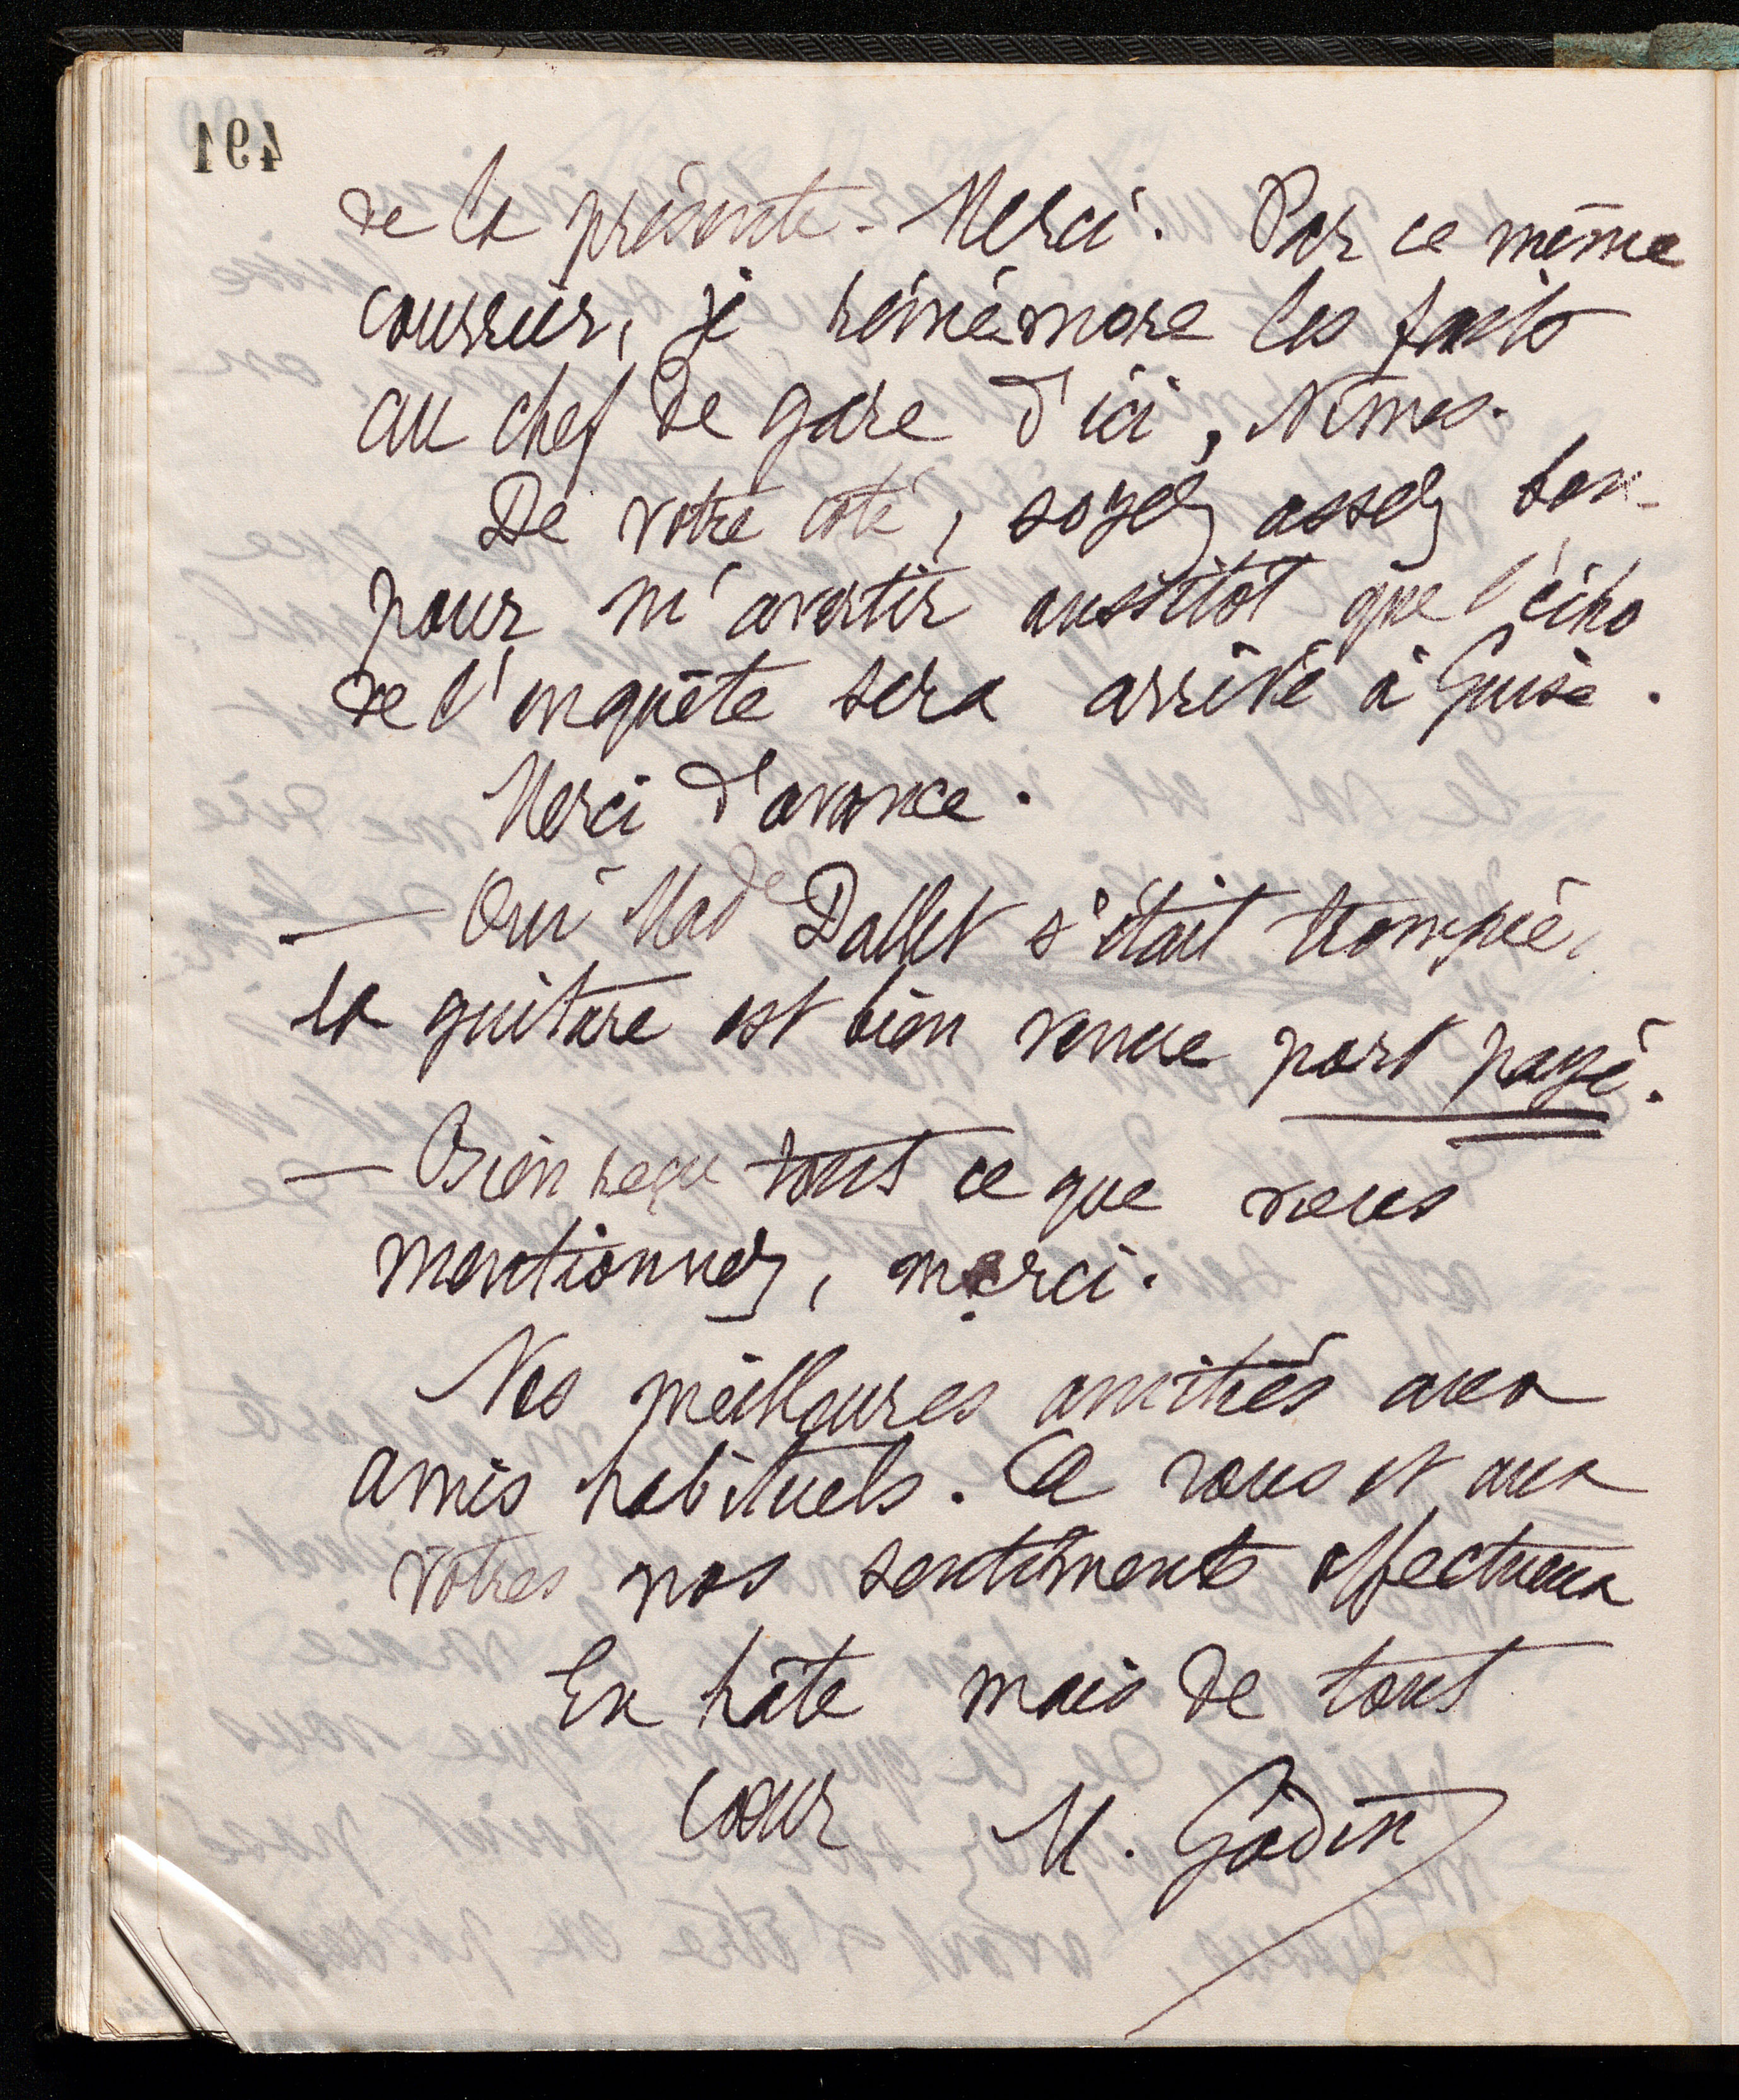 491
de la présente. Merci. Par ce même
courrier, je remémore les faits
au chef de gare d'ici, Nîmes.
De votre côté, soyez assez bon
pour m'avertir aussitôt que l'écho
de l'enquête sera arrivé à Guise.
Merci d'avance.
— Oui Made Dallet s'était trompée,
la guitare est bien venue port payé.
— Bien reçu tout ce que vous
mentionnez, merci.
Nos meilleures amitiés aux
amis habituels. A vous et aux
vôtres nos sentiments affectueux
En hâte mais de tout
cœur M. Godin